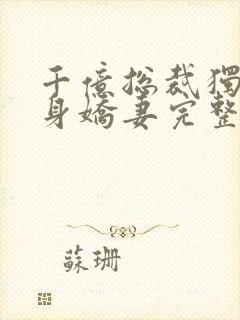 千億總裁獨
身嬌妻完整
蘇珊